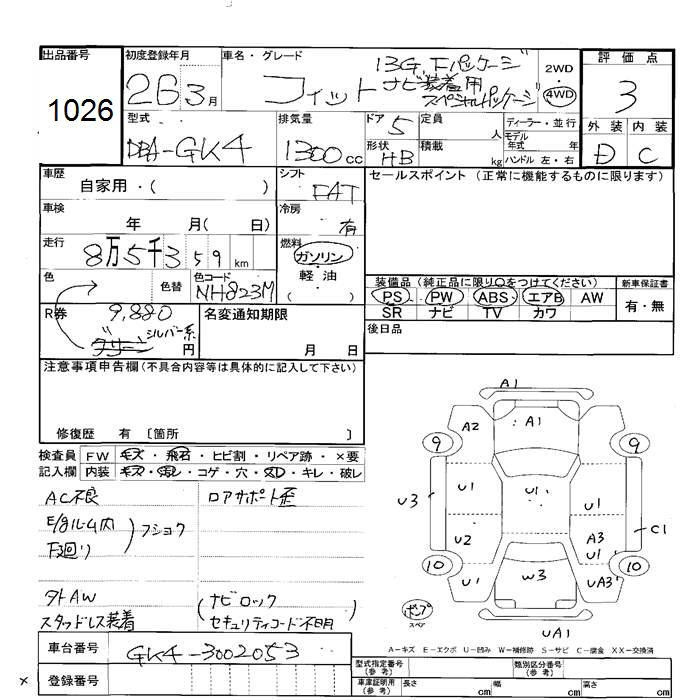 出品番号
1026
初度登録年月
26 3月
車名・グレード
フィット 13G Fパッケージ
ナビ装着用
スペシャルパッケージ
2WD
4WD
評価点
3
外装 内装
D C
型式
DBA-GK4
排気量
1300cc
ドア 5
定員 人
形状 HB
積載 kg
ディーラー・並行
モデル年式 年
ハンドル 左・右
車歴
自家用・( )
シフト
FAT
セールスポイント(正常に機能するものに限ります)
車検
年 月( 日)
冷房
有
走行
8万5千359km
燃料
ガソリン
軽油
( )
色
色替
色コード
NH823M
装備品(純正品に限り○をつけてください)
PS PW ABS エアB AW
SR ナビ TV カワ
新車保証書
有・無
R券
9,880
円
シルバー系
名変通知期限
月 日
後日品
注意事項申告欄(不具合内容等は具体的に記入して下さい)
修復歴 有 〔箇所 〕
検査員 FW キズ・飛石・ヒビ割・リペア跡・×要
記入欄 内装 キズ・汚レ・コゲ・穴・スレ・キレ・破レ
AC不良
ロアサポート歪
E/gルーム内
下廻り
フショク
社外AW
スタッドレス装着
(ナビロック
セキュリティコード不明)
A1
A2 A1
9 9
U3 U1 U1 U1 C1
U2 A3
U1
10 10
U1 W3 UA3
UA1
パンプ
スペア
A-キズ E-エクボ U-凹み W-補修跡 S-サビ C-腐食 XX-交換済
車台番号
GK4-3002053
登録番号
×
型式指定番号(参考)
類別区分番号(参考)
車庫証明用(参考) 長さ cm 幅 cm 高さ cm